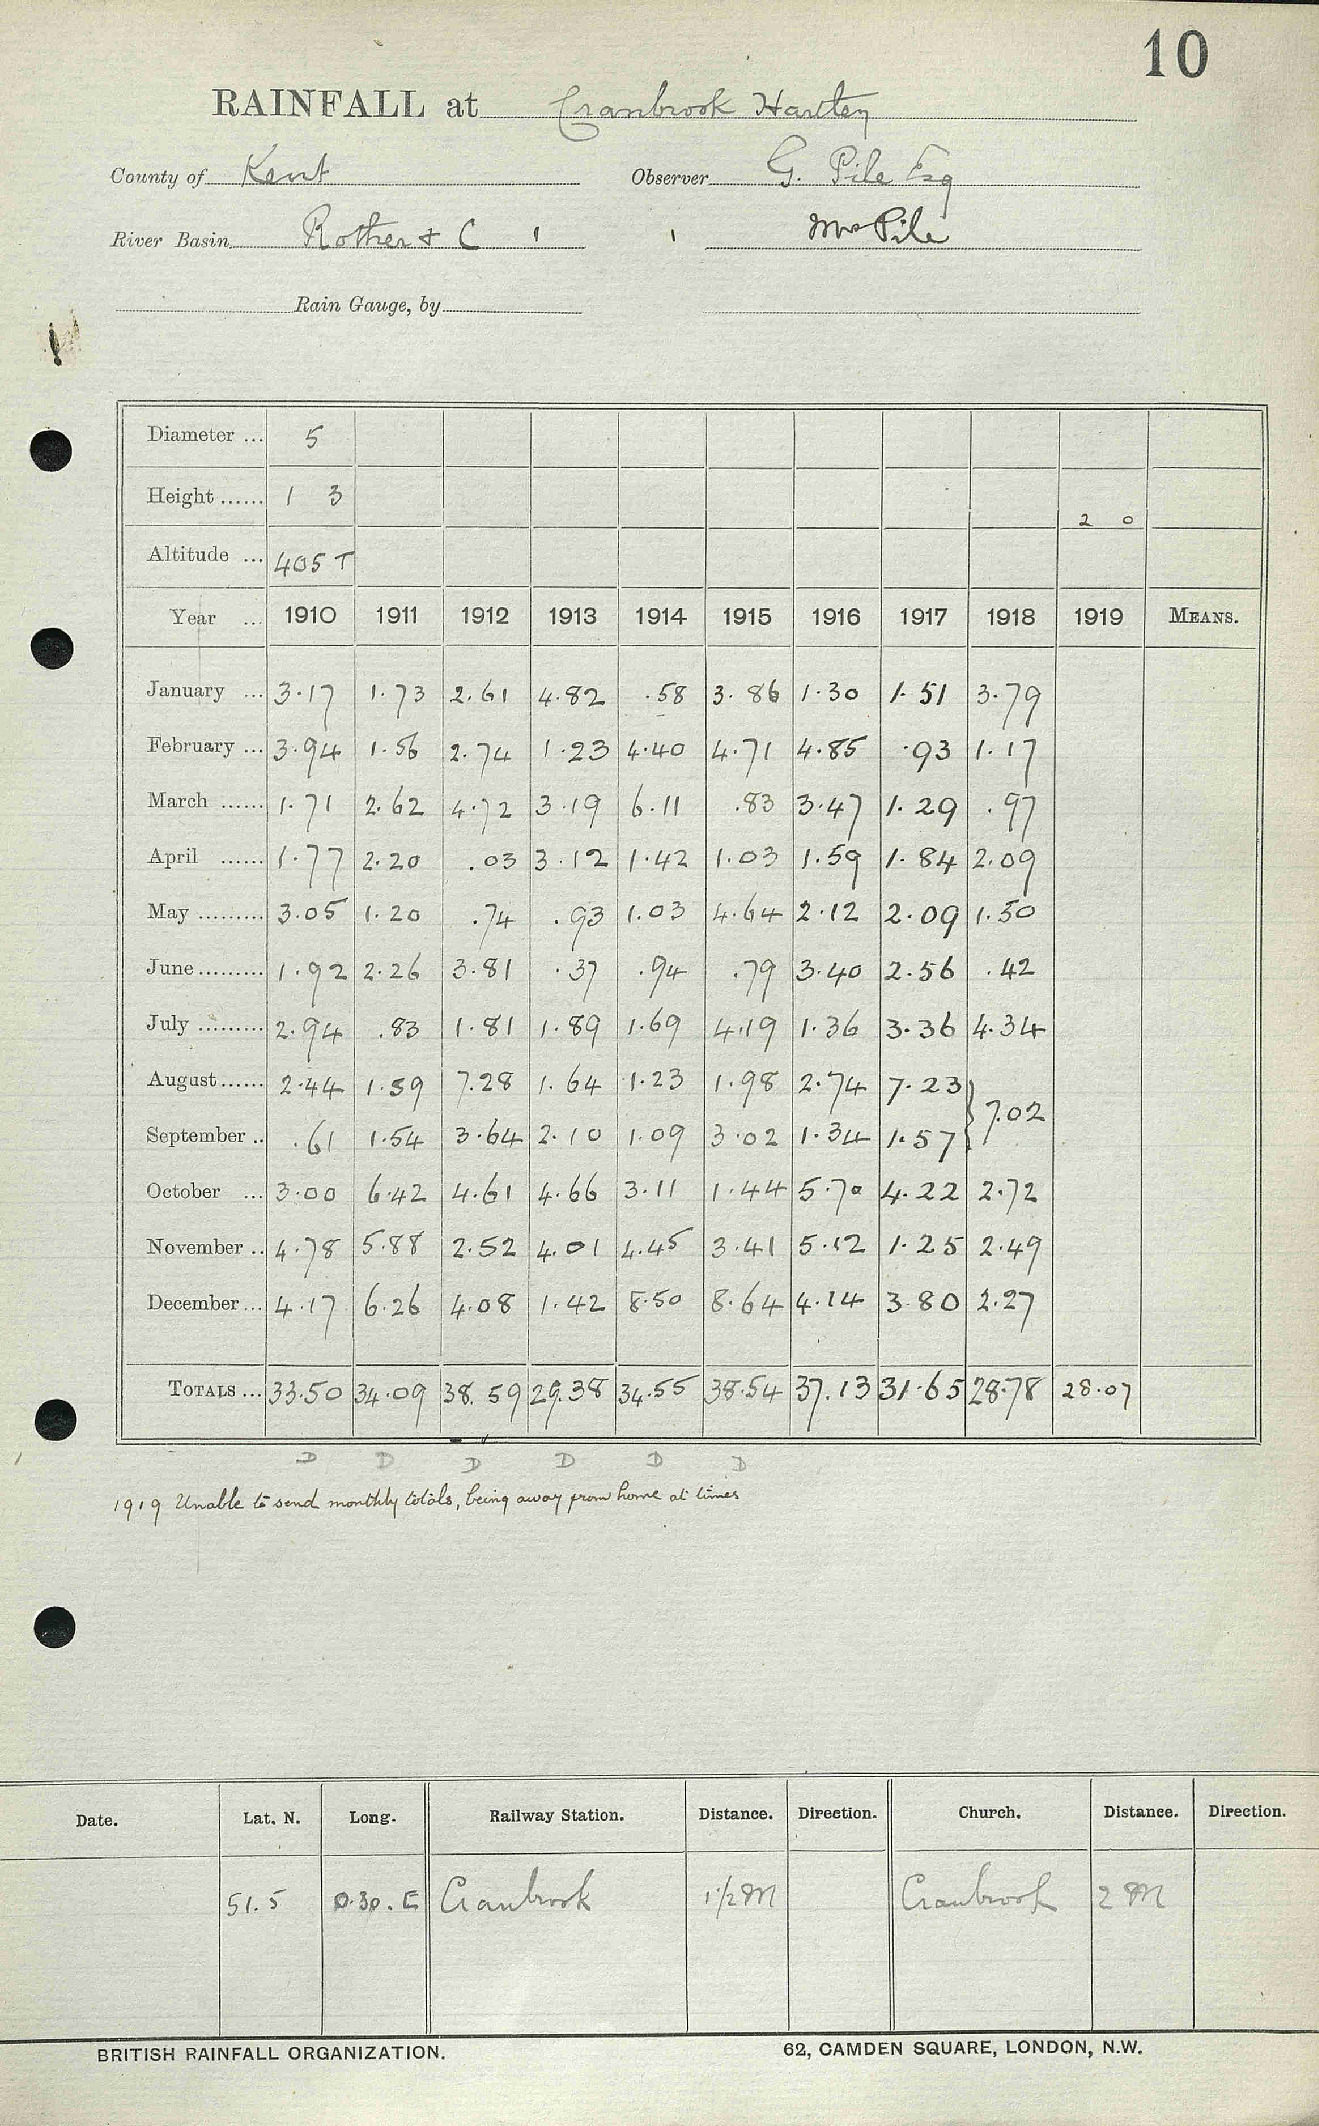 10
RAINFALL at Cranbrook Hartley
County of Kent Observer G. Pile Esq
River Basin Rother & C 1 1 Mrs Pile
Rain Gauge, by
Diameter ... 5
Height ...... 1 3 2 0
Altitude ... 405 T
Year ... 1910 1911 1912 1913 1914 1915 1916 1917 1918 1919 MEANS.
January ... 3.17 1.73 2.61 4.82 .58 3.86 1.30 1.51 3.79
February ... 3.94 1.56 2.74 1.23 4.40 4.71 4.85 .93 1.17
March ...... 1.71 2.62 4.72 3.19 6.11 .83 3.47 1.29 .97
April ...... 1.77 2.20 .03 3.12 1.42 1.03 1.59 1.84 2.09
May ......... 3.05 1.20 .74 .93 1.03 4.64 2.12 2.09 1.50
June ......... 1.92 2.26 3.81 .37 .94 .79 3.40 2.56 .42
July ......... 2.94 .83 1.81 1.89 1.69 4.19 1.36 3.36 4.34
August ...... 2.44 1.59 7.28 1.64 1.23 1.98 2.74 7.23 } 7.02
September .. .61 1.54 3.64 2.10 1.09 3.02 1.34 1.57
October ... 3.00 6.42 4.61 4.66 3.11 1.44 5.70 4.22 2.72
November .. 4.78 5.88 2.52 4.01 4.45 3.41 5.12 1.25 2.49
December ... 4.17 6.26 4.08 1.42 8.50 8.64 4.14 3.80 2.27
TOTALS ... 33.50 34.09 38.59 29.38 34.55 38.54 37.13 31.65 28.78 28.07
D D D D D D
1919 Unable to send monthly totals, being away from home at times
Date. Lat. N. Long. Railway Station. Distance. Direction. Church. Distance. Direction.
51.5 0.30.E Cranbrook 1 1/2 M Cranbrook 2 M
BRITISH RAINFALL ORGANIZATION. 62, CAMDEN SQUARE, LONDON, N.W.